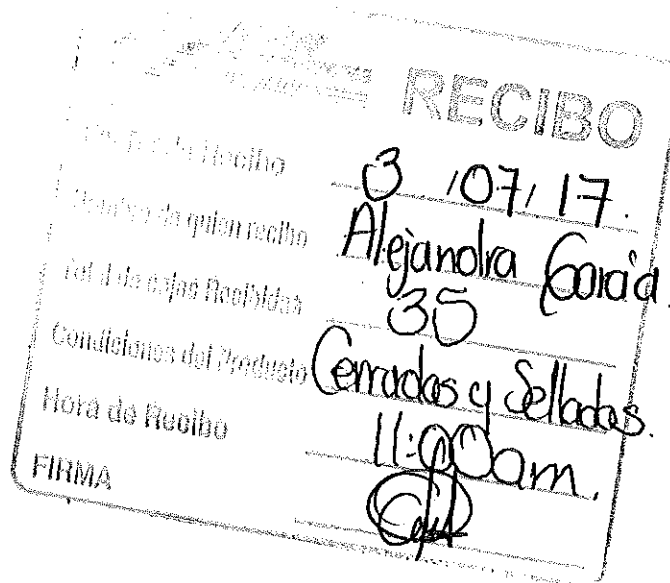 RECIBO
Recibo 3 /07/ 17.
Nombre de quien recibe Alejandra García.
Total de cajas Recibidas 35
Condiciones del Producto Cerradas y Selladas.
Hora de Recibo 11:00am.
FIRMA